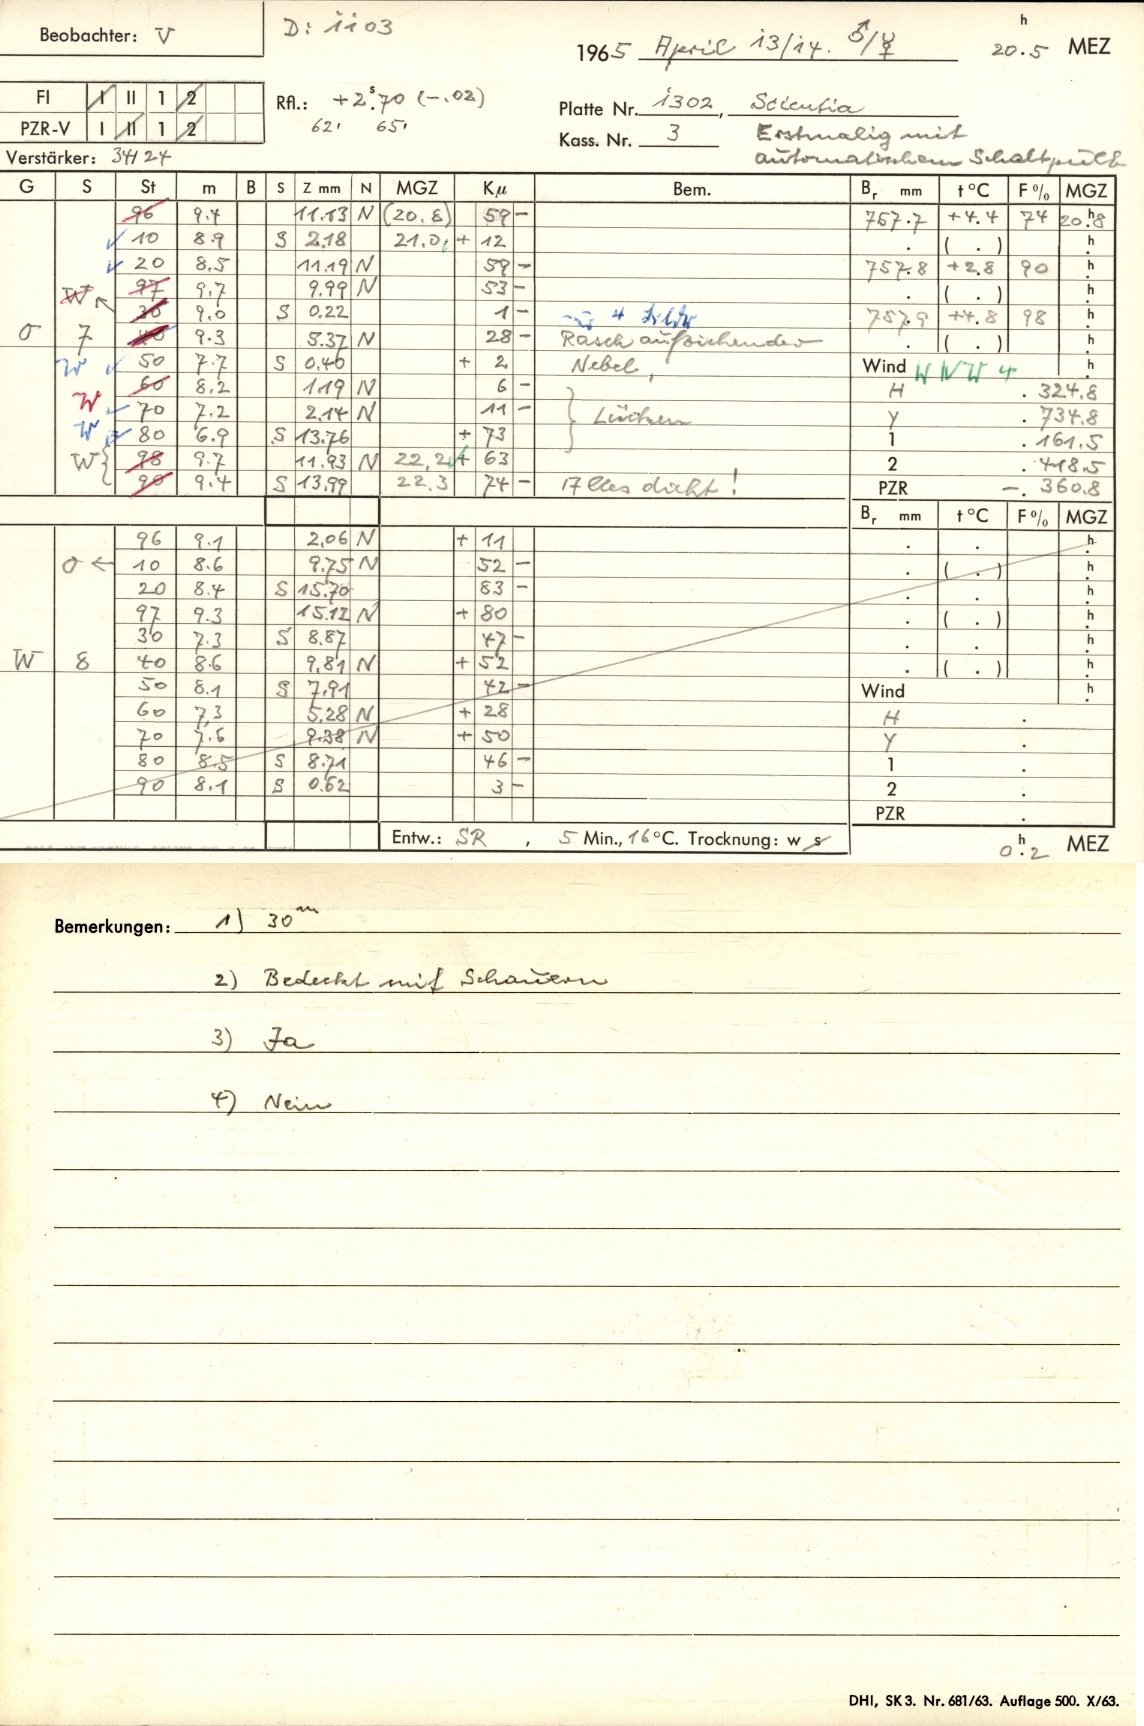 Beobachter: V
D: 1103
1965 April 13/14. ♂/☿ 20.5 h MEZ
FI I II 1 2
PZR-V I II 1 2
Rfl.: +2.ˢ70 (-.02)
62' 65'
Platte Nr. 1302, Scientia
Kass. Nr. 3 Erstmalig mit
automatischem Schaltpult
Verstärker: 34/24
G S St m B S Z mm N MGZ Kμ Bem. Br mm t °C F % MGZ
96 9.4 11.13 N (20.8) 59 - 757.7 +4.4 74 20.8 h
10 8.9 S 2.18 21.0 + 12 . ( . ) h
20 8.5 11.19 N 59 - 757.8 +2.8 90 h
W 97 9.7 9.99 N 53 - . ( . ) h
30 9.0 S 0.22 1 - 757.9 +4.8 98 h
O 7 40 9.3 5.37 N 28 - Rasch aufziehender . ( . ) h
W 50 7.7 S 0.40 + 2 Nebel, Wind WNW 4 h
W 60 8.2 1.19 N 6 - H . 324.8
70 7.2 2.14 N 11 - Lücken Y . 734.8
W 80 6.9 S 13.76 + 73 1 . 161.5
W 98 9.7 11.93 N 22.2 + 63 2 . 418.5
90 9.4 S 13.99 22.3 74 - Alles dicht! PZR -. 360.8
Br mm t °C F % MGZ
96 9.1 2.06 N + 11 . . h
O ← 10 8.6 9.75 N 52 - . ( . ) h
20 8.4 S 15.70 83 - . . h
97 9.3 15.12 N + 80 . ( . ) h
30 7.3 S 8.87 47 - . . h
W 8 40 8.6 9.81 N + 52 . ( . ) h
50 8.1 S 7.91 42 - Wind h
60 7.3 5.28 N + 28 H .
70 7.6 9.38 N + 50 Y .
80 8.5 S 8.71 46 - 1 .
90 8.1 S 0.62 3 - 2 .
PZR .
Entw.: SR , 5 Min., 16 °C. Trocknung: w s 0.2 h MEZ
Bemerkungen: 1) 30ᵐ
2) Bedeckt mit Schauern
3) Ja
4) Nein
DHI, SK 3. Nr. 681/63. Auflage 500. X/63.